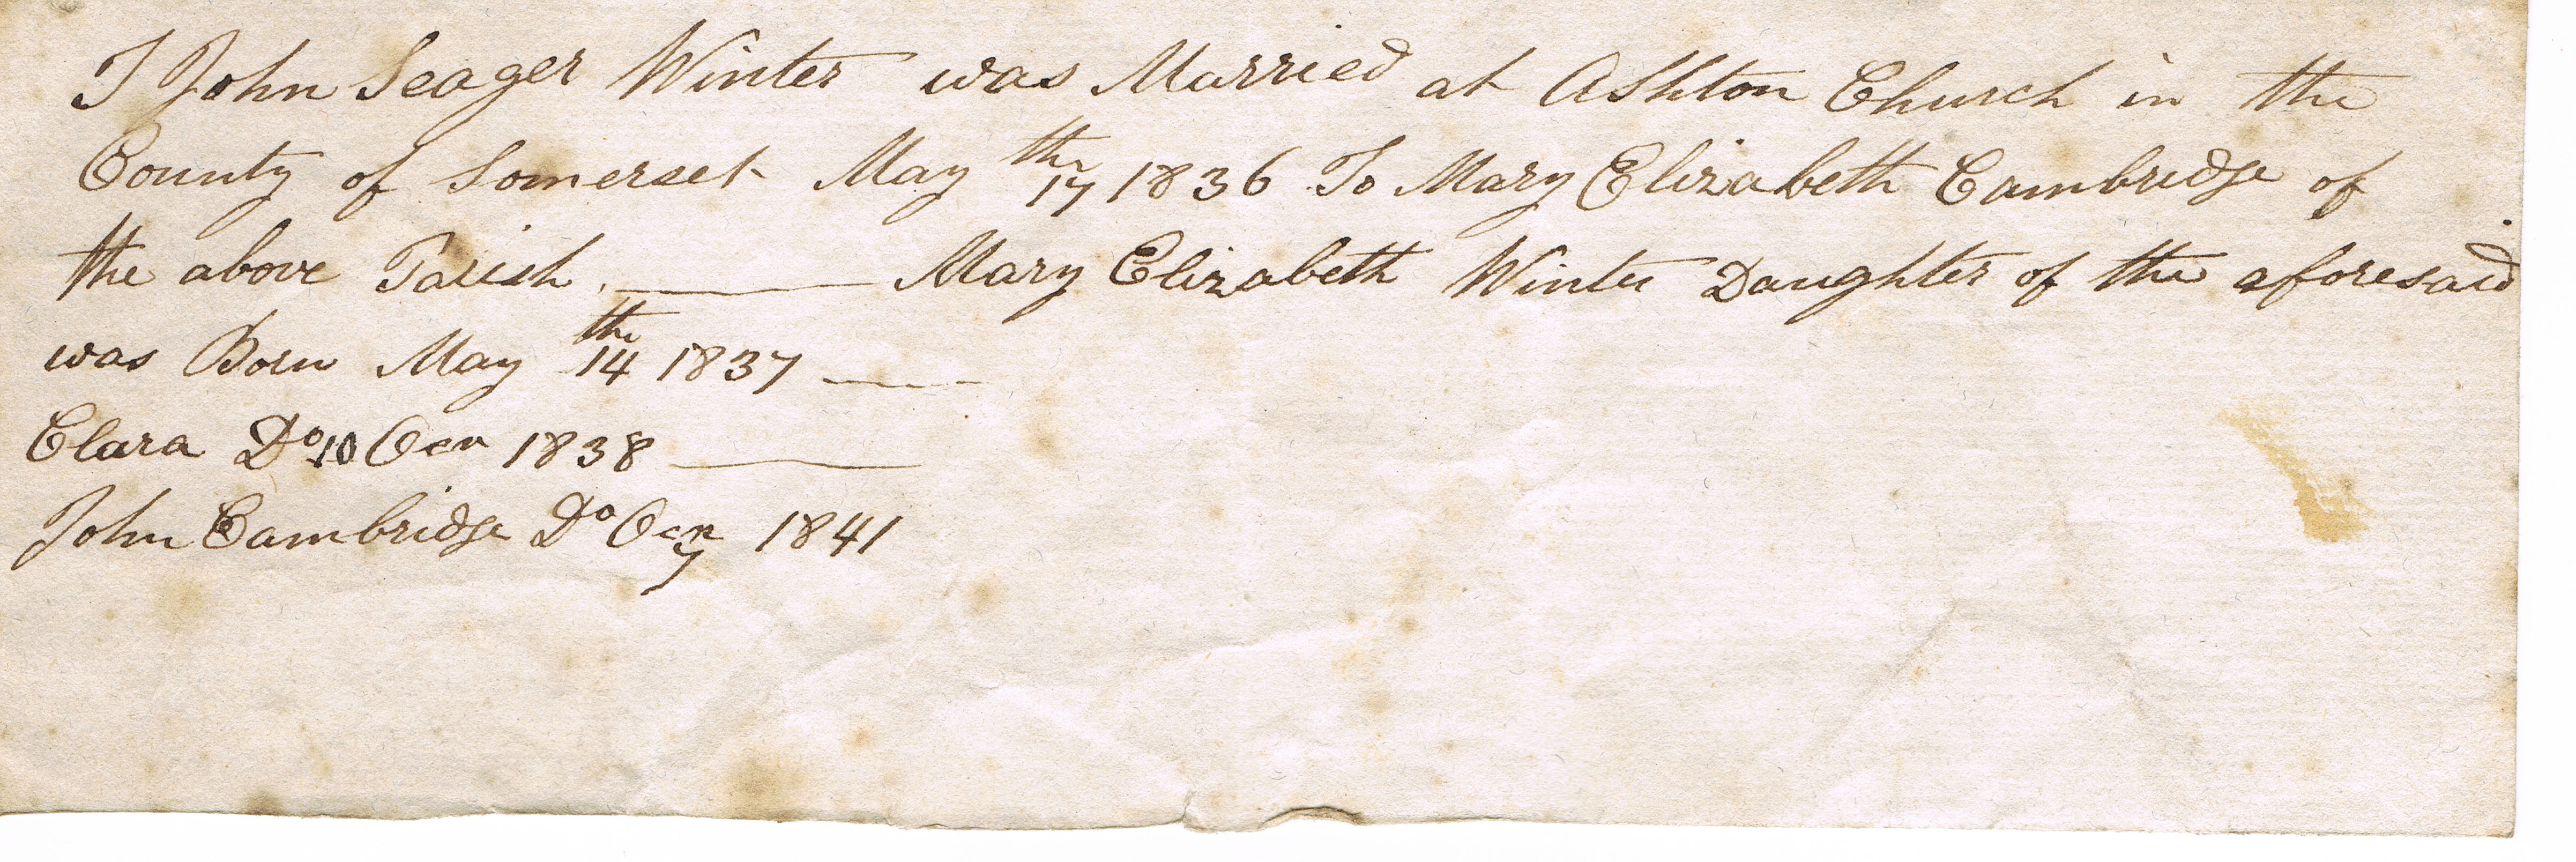 I John Seager Winter was Married at Ashton Church in the
County of Somerset May 17th 1836 To Mary Elizabeth Cambridge of
the above Parish. —— Mary Elizabeth Winter Daughter of the aforesaid
was Born May 14th 1837 ——
Clara Do 10 1838 ——
John Cambridge Do 1841